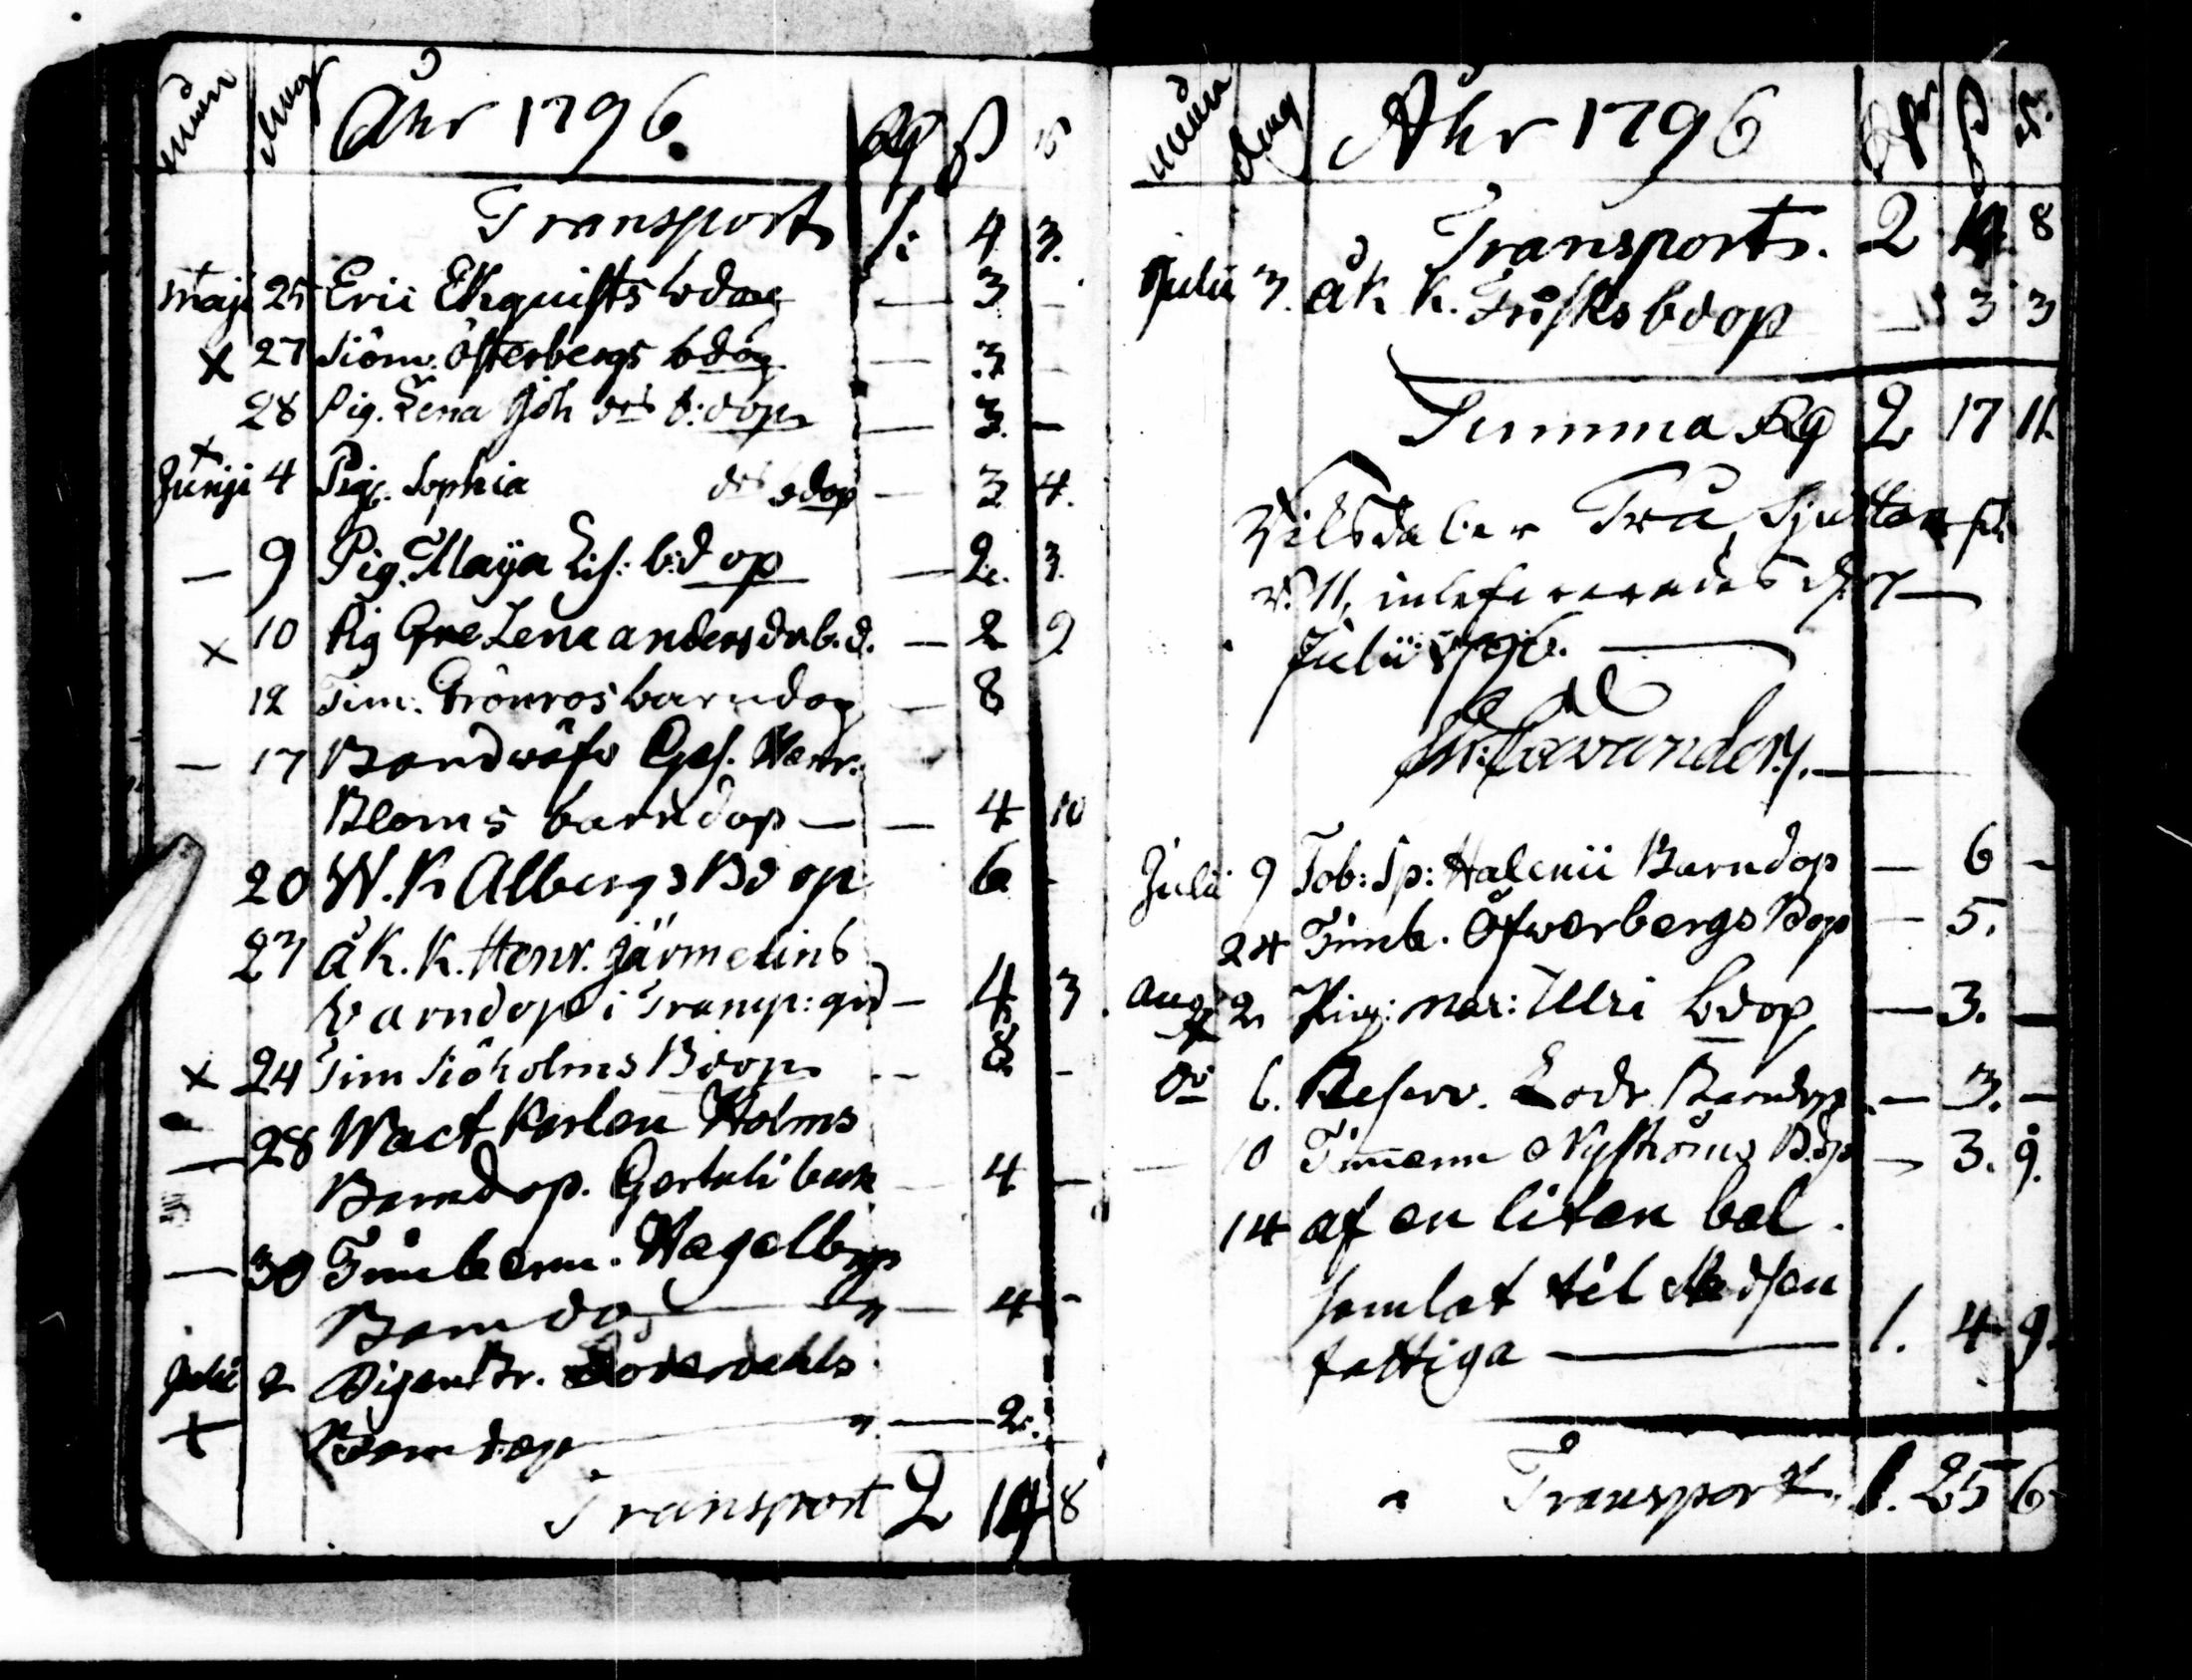 Månd dag Åhr 1796. Rg ß rs
Transport 1: 4 3.
Maji 25 Eric Ekquists bdop — 3 —
x 27 Siöm. Österbergs bdop — 3 —
28 Pig. Lena Joh drs b:dop — 3. —
x Junji 4 Pig. Sophia drs bdop — 3 4.
— 9 Pig. Maija Lis: b:dop — 2. 3.
x 10 Pig Gre Lena anders dr b.d. — 2 9
12 Tim. Grönros barndop — 8
— 17 Handwäfv Henr.
Bloms barndop — — 4 10
20 W. K Albergs Bdop 6 -
23 åK. K. Henr. Järmelins
barndop i Tramp: grd — 4 3
x 24 Tim Siöholms Bdop - 8 -
— 28 Wact Karlen Holms
Barndop. — 4 —
— 30 Timberm. Hagelbergs
Barndop " — 4 -
Julii 2 Söderdahls
+ Barndop ". — 2.
Transport 2 14 8
Månd dag Åhr 1796 Rdr ß rs.
Transport. 2 14 8
Julii 3. åk k. Frisks bdop — 3 3
Summa Rg 2 17 11
Riksdaler Två, Sjutton sk.
rs. 11, inlefererades d. 7 —
Julii 1796. —
Julii 9 Tob: Sp: Halenii Barndop — 6 -
24 Timb. Öfwerbergs Bdop — 5.
Aug 2 Pig: Mar: Ulri bdop — 3. —
do 6. Reserv. Lodr Barndop. — 3. —
— 10 Timerm Nyströms Bdop — 3. 9.
14 af en liten bal.
samlat til Madsen
fattiga — 1. 4 9.
Transport. 1. 25 6